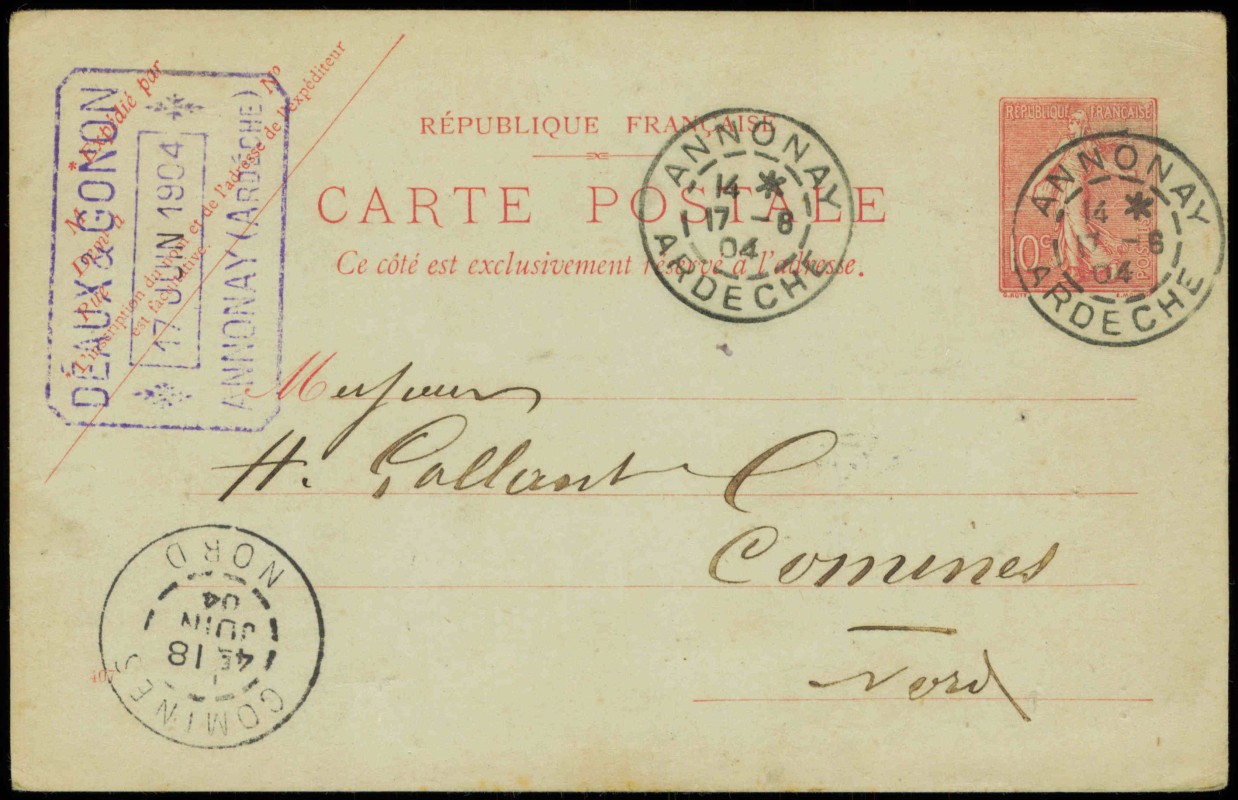 RÉPUBLIQUE FRANÇAISE
CARTE POSTALE
Ce côté est exclusivement réservé à l'adresse.
* Expédié par
M
Demt à
Rue Nº
* L'inscription du nom et de l'adresse de l'expéditeur
est facultative.
DÉAUX & GONON
17 JUIN 1904
ANNONAY (ARDÈCHE)
ANNONAY
14 *
17 - 6
04
ARDECHE
REPUBLIQUE FRANÇAISE
10 c
POSTES
ANNONAY
14 *
17 - 6
04
ARDECHE
Messieurs
H. Gallant C
Comines
Nord
COMINES
4E
18
JUIN
04
NORD
407